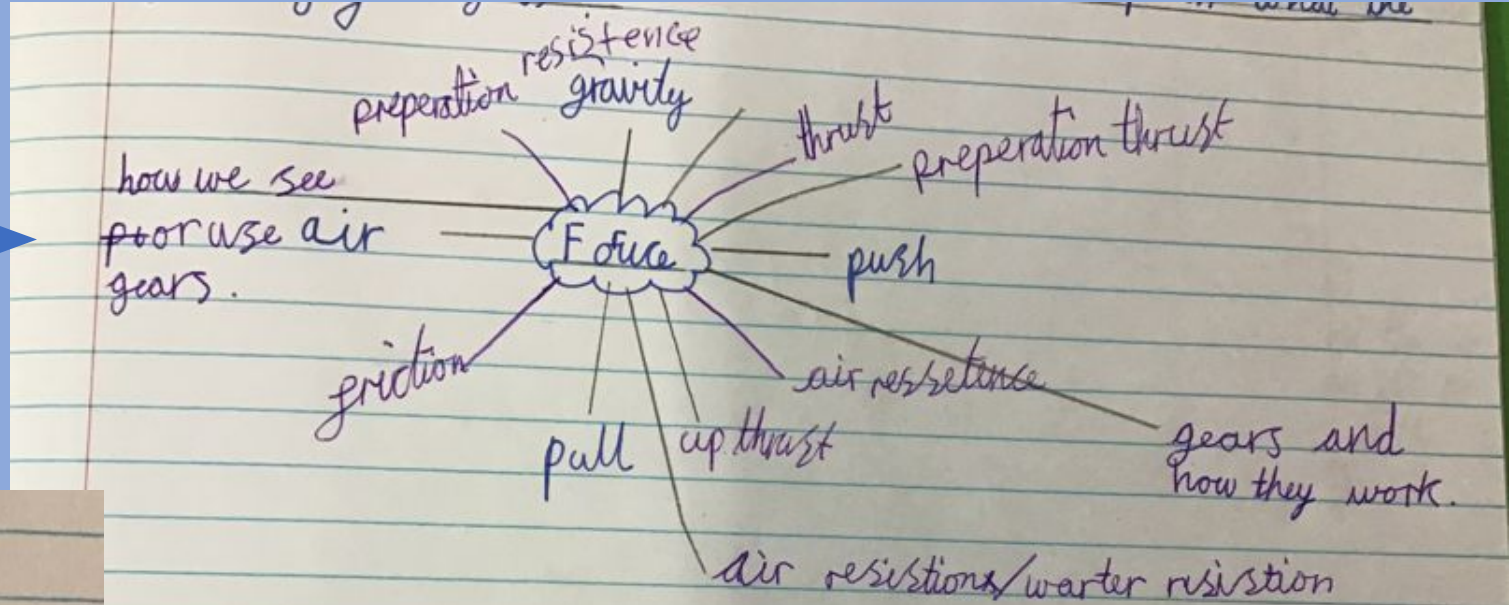 resistence
preperation
gravity
thrust
preperation thrust
how we see
or use air
gears.
Fofuce
push
friction
air ressetence
pull
up thrust
gears and
how they work.
air resistions/warter risistion